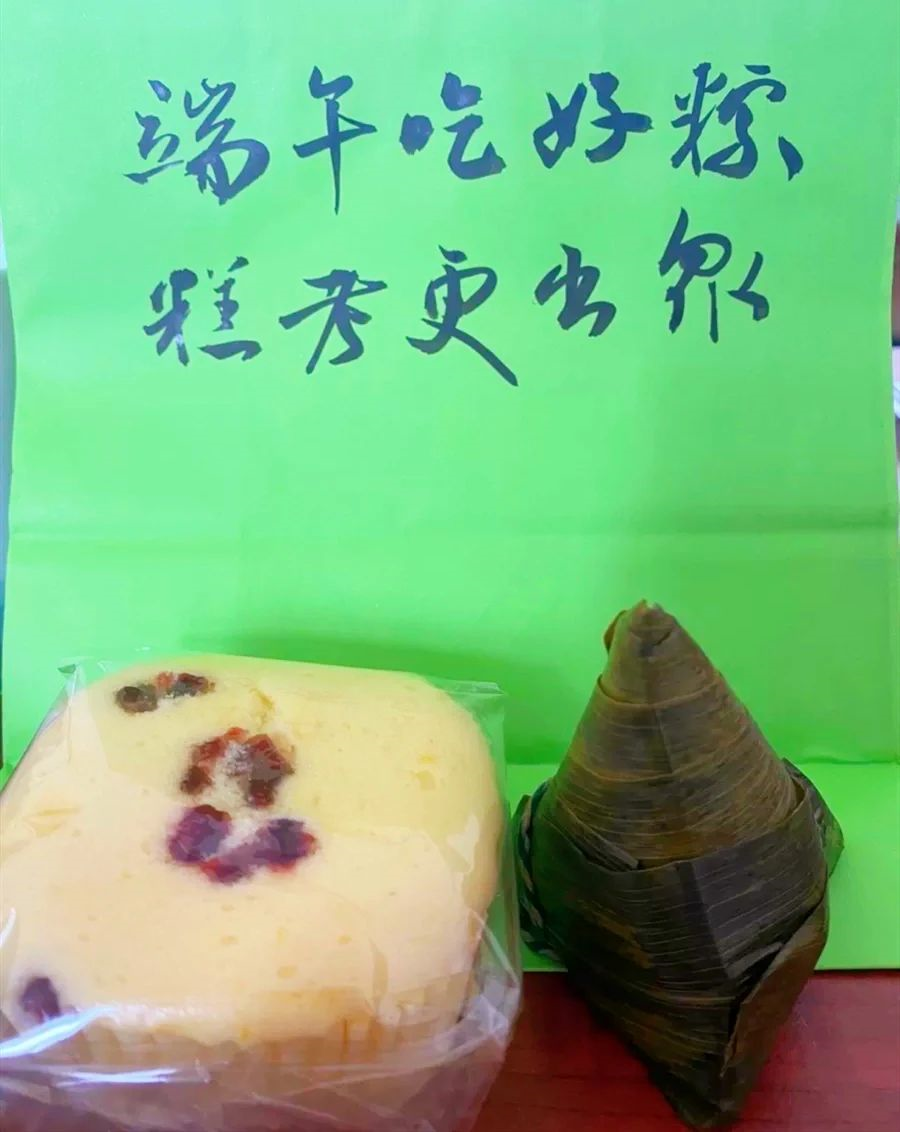 端午吃好粽
糕考更出众